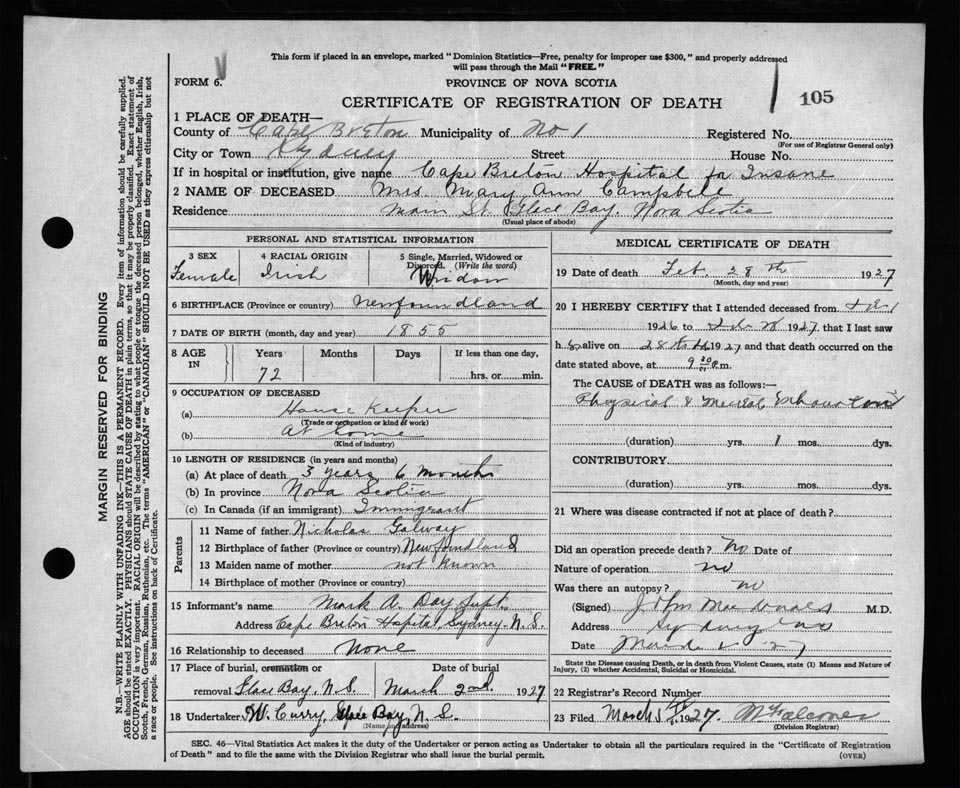 This form if placed in an envelope, marked "Dominion Statistics—Free, penalty for improper use $300," and properly addressed
will pass through the Mail "FREE."
FORM 6.
PROVINCE OF NOVA SCOTIA
CERTIFICATE OF REGISTRATION OF DEATH
105
1 PLACE OF DEATH—
County of Cape Breton Municipality of No 1 Registered No.
(For use of Registrar General only)
City or Town Sydney Street House No.
If in hospital or institution, give name Cape Breton Hospital for Insane
2 NAME OF DECEASED Mrs Mary Ann Campbell
Residence Main St. Glace Bay, Nova Scotia
(Usual place of abode)
PERSONAL AND STATISTICAL INFORMATION
3 SEX 4 RACIAL ORIGIN 5 Single, Married, Widowed or
Divorced. (Write the word)
Female Irish Widow
6 BIRTHPLACE (Province or country) Newfoundland
7 DATE OF BIRTH (month, day and year) 1855
8 AGE IN Years Months Days If less than one day,
72 hrs. or min.
9 OCCUPATION OF DECEASED
(a) House Keeper
(Trade or occupation or kind of work)
(b) At home
(Kind of industry)
10 LENGTH OF RESIDENCE (in years and months)
(a) At place of death 3 years 6 months
(b) In province Nova Scotia
(c) In Canada (if an immigrant) Immigrant
Parents
11 Name of father Nicholas Galway
12 Birthplace of father (Province or country) Newfoundland
13 Maiden name of mother not known
14 Birthplace of mother (Province or country)
15 Informant's name Mark A. Day Supt.
Address Cape Breton Hspital Sydney N.S.
16 Relationship to deceased None
17 Place of burial, cremation or Date of burial
removal Glace Bay, N.S. March 2nd. 1927
18 Undertaker W. Curry Glace Bay, N.S.
(Name and address)
MEDICAL CERTIFICATE OF DEATH
19 Date of death Feb. 28th 1927
(Month, day and year)
20 I HEREBY CERTIFY that I attended deceased from
1926 to Feb 28 1927, that I last saw
h alive on 28th 1927 and that death occurred on the
date stated above, at 9 m.
The CAUSE of DEATH was as follows:—
Physical & Mental Exhaustion
(duration) yrs. 1 mos. dys.
CONTRIBUTORY
(duration) yrs. mos. dys.
21 Where was disease contracted if not at place of death?
Did an operation precede death? No Date of
Nature of operation no
Was there an autopsy? no
(Signed) John MacDonald M.D.
Address Sydney
Date March 27
State the Disease causing Death, or in death from Violent Causes, state (1) Means and Nature of
Injury, (2) whether Accidental, Suicidal or Homicidal.
22 Registrar's Record Number
23 Filed March 1927.
(Division Registrar)
SEC. 46—Vital Statistics Act makes it the duty of the Undertaker or person acting as Undertaker to obtain all the particulars required in the "Certificate of Registration
of Death" and to file the same with the Division Registrar who shall issue the burial permit.
(OVER)
MARGIN RESERVED FOR BINDING
N.B.—WRITE PLAINLY WITH UNFADING INK—THIS IS A PERMANENT RECORD. Every item of information should be carefully supplied.
AGE should be stated EXACTLY. PHYSICIANS should STATE CAUSE OF DEATH in plain terms, so that it may be properly classified. Exact statement of
OCCUPATION is very important. RACIAL ORIGIN will be described by stating to what people or tongue the deceased person belonged, whether English, Irish,
Scotch, French, German, Russian, Ruthenian, etc. The terms "AMERICAN" or "CANADIAN" SHOULD NOT BE USED as they express citizenship but not
a race or people. See instructions on back of Certificate.